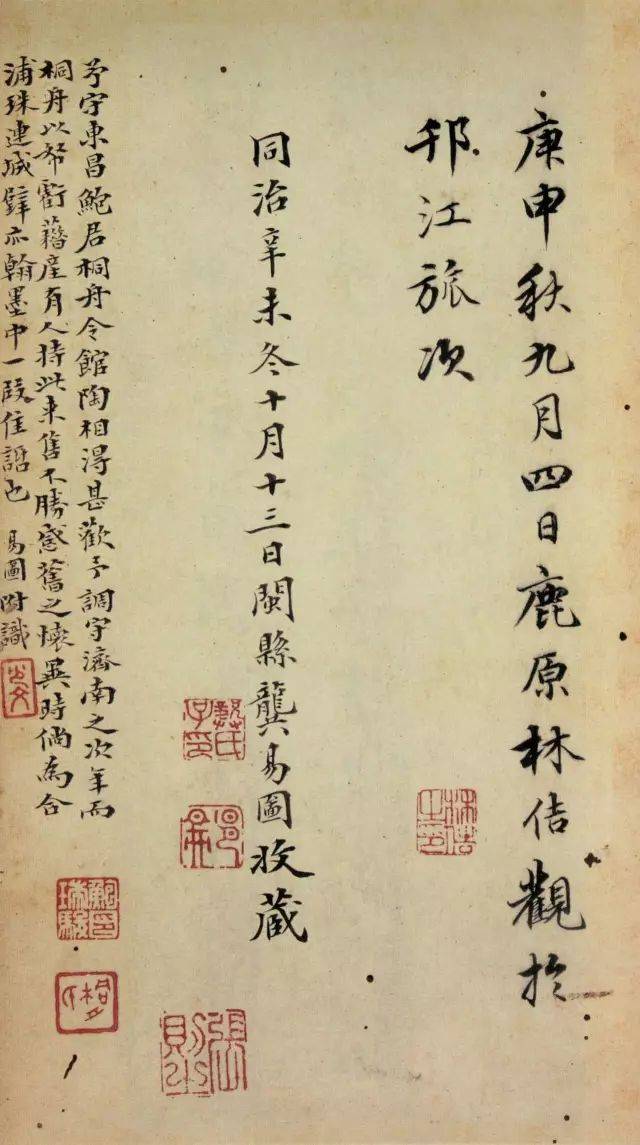 庚申秋九月四日鹿原林佶觀於
邗江旅次
同治辛未冬十月十三日閩縣龔易圖收藏
予守東昌鮑君桐舟令館陶相得甚歡予調守濟南之次年而
桐舟以帑虧藉產有人持此来售不勝感舊之懷異時倘為合
浦珠連城璧亦翰墨中一段佳話也 易圖附識